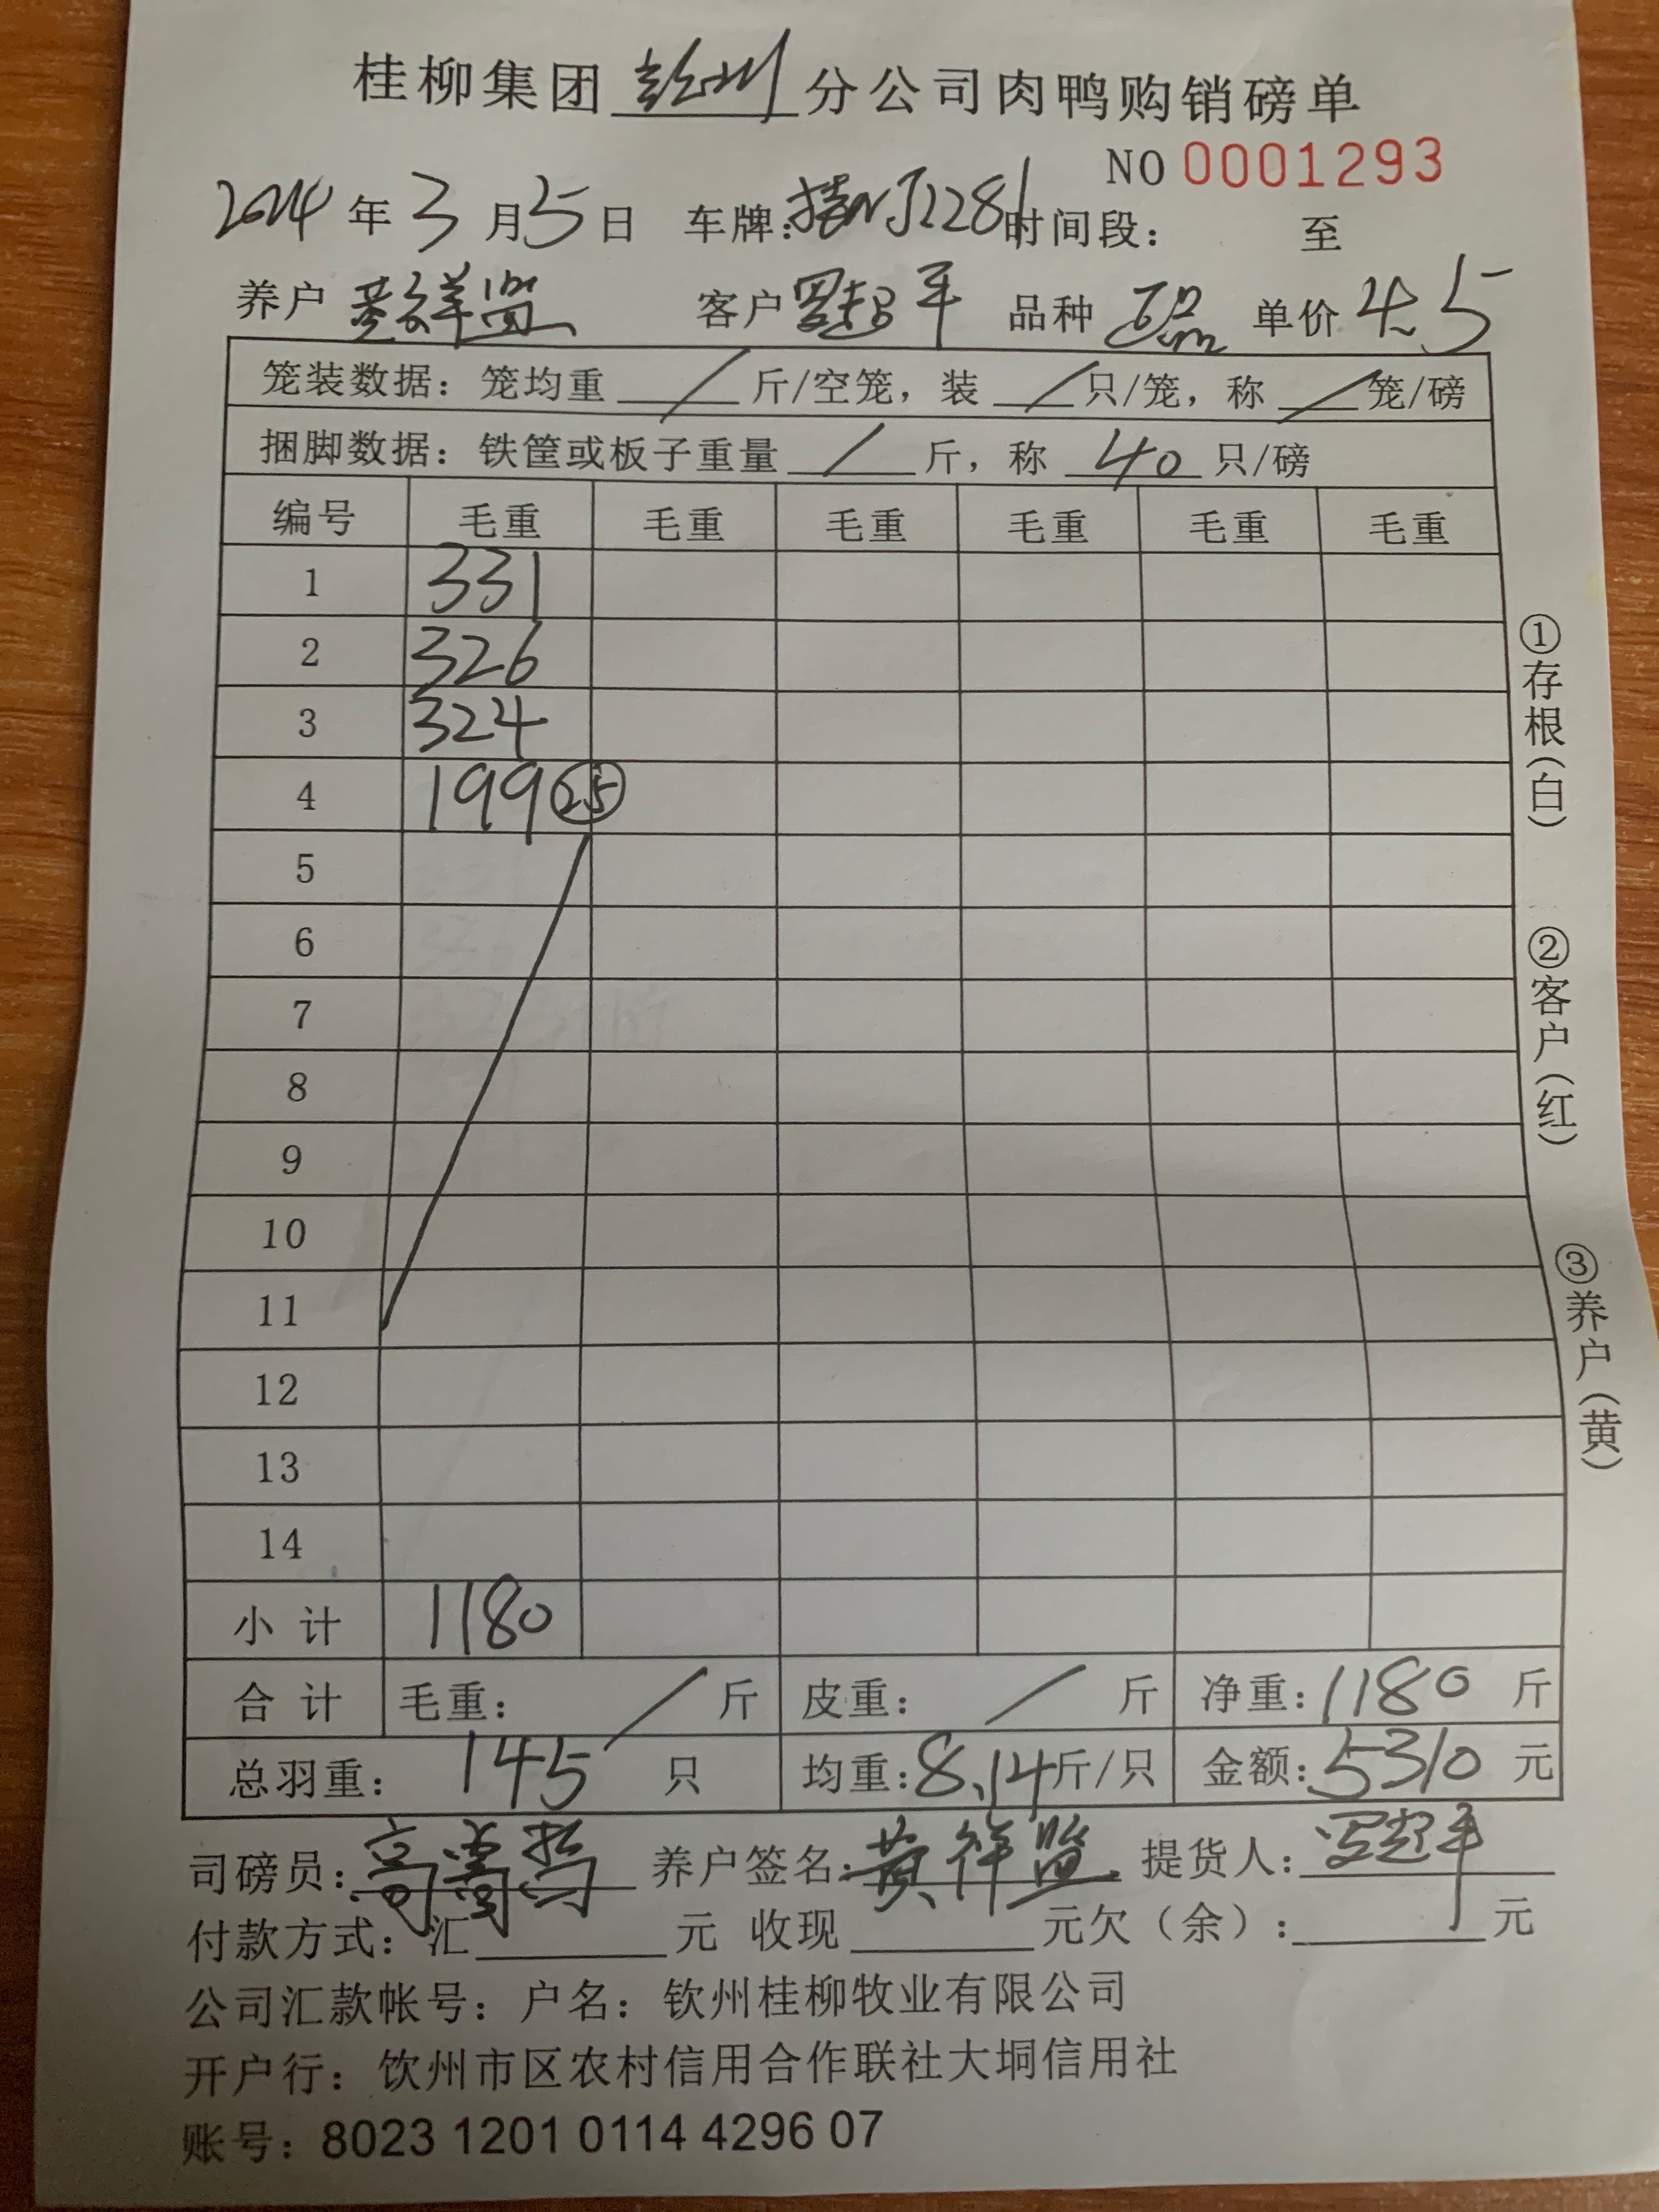 桂柳集团 彭州 分公司肉鸭购销磅单
NO 0001293
2024 年 3 月 5 日 车牌：桂NJ1281 时间段： 至
养户 黄祥监 客户 罗起平 品种 单价 4.5
笼装数据：笼均重 / 斤/空笼，装 / 只/笼，称 / 笼/磅
捆脚数据：铁筐或板子重量 / 斤，称 40 只/磅
编号 毛重 毛重 毛重 毛重 毛重 毛重
1 331
2 326
3 324
4 199 ㉕
5
6
7
8
9
10
11
12
13
14
小计 1180
合计 毛重： / 斤 皮重： / 斤 净重：1180 斤
总羽重： 145 只 均重：8.14斤/只 金额：5310 元
司磅员： 养户签名：黄祥监 提货人：罗起平
付款方式：汇 元 收现 元欠（余）： 元
公司汇款帐号：户名：钦州桂柳牧业有限公司
开户行：钦州市区农村信用合作联社大垌信用社
账号：8023 1201 0114 4296 07
①存根（白）
②客户（红）
③养户（黄）